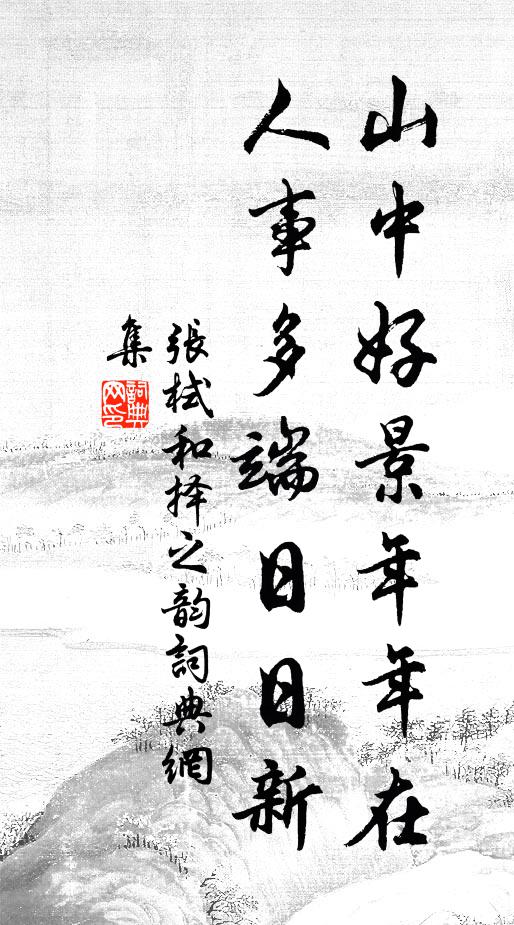 山中好景年年在
人事多端日日新
張栻和择之韵詞典網
集
詞典網印